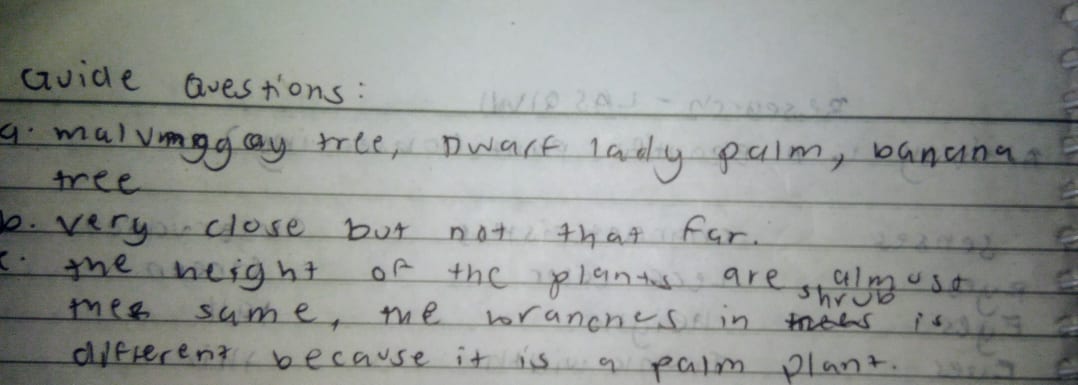 Guide Questions:
a. malunggay tree, Dwarf lady palm, banana
tree
b. very close but not that far.
c. the height of the plants are almost
the same, the branches in shrub is
different because it is a palm plant.